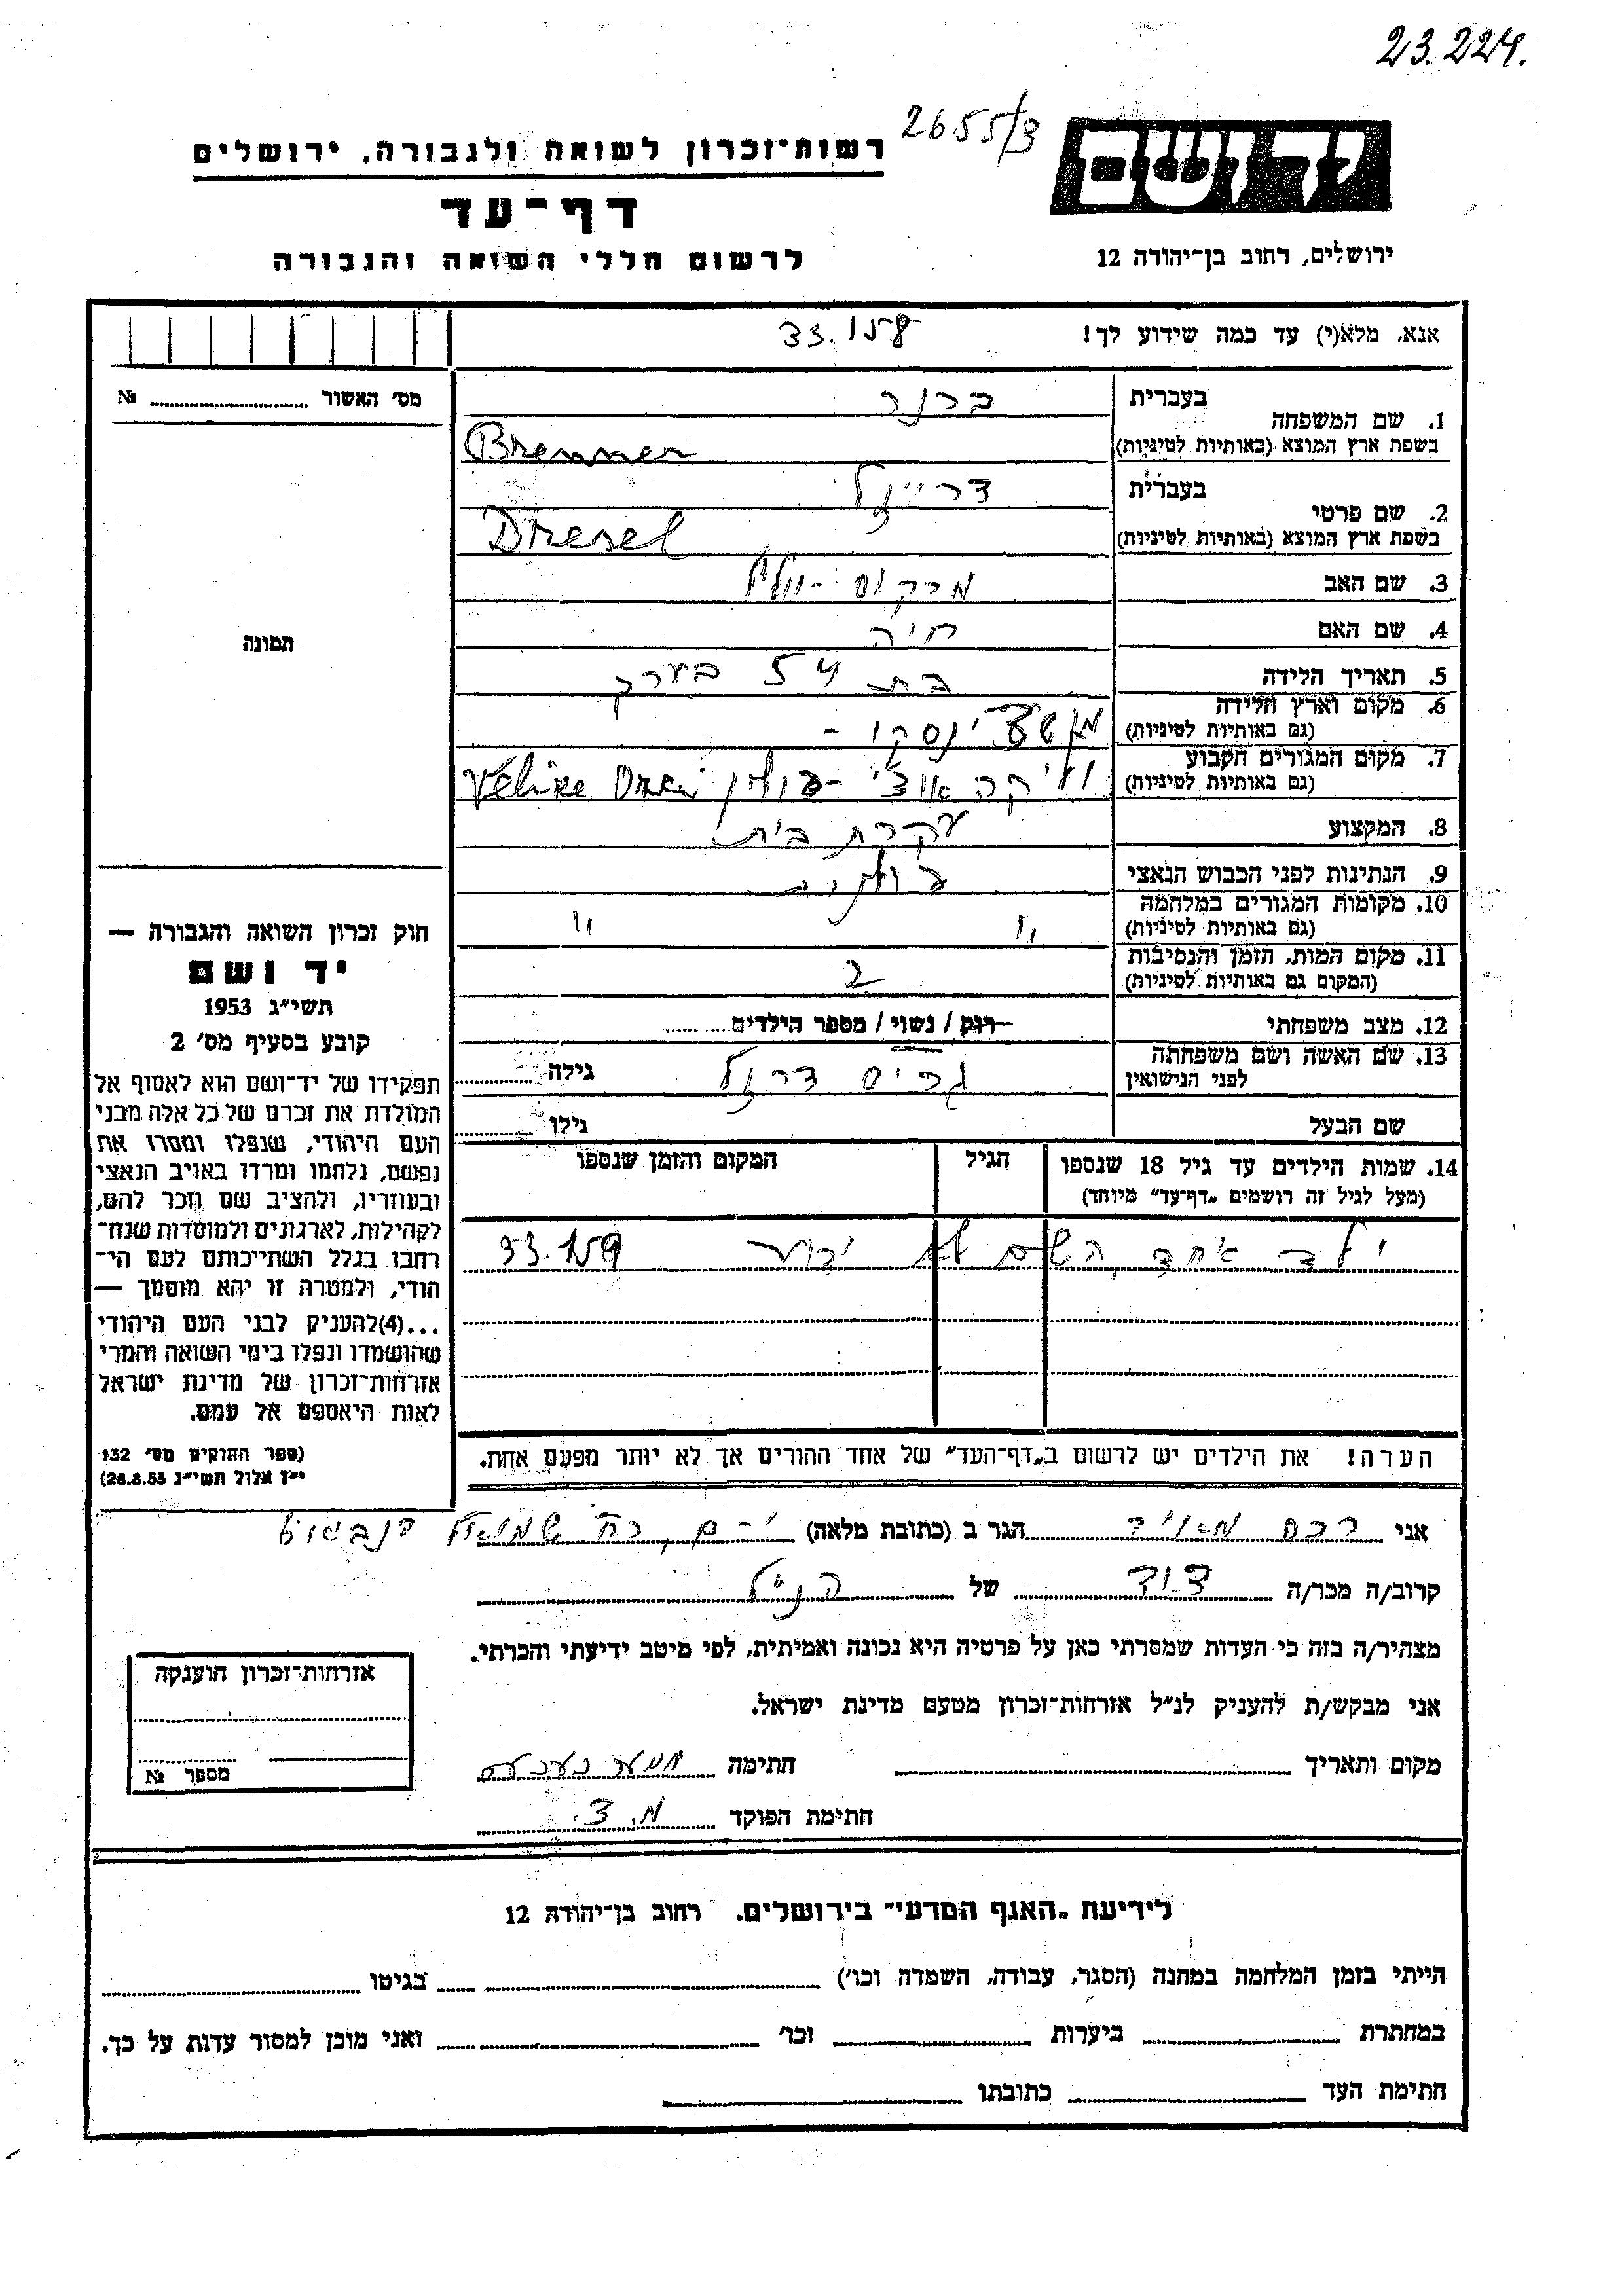 23.224.
2655/3
רשות־זכרון לשואה ולגבורה, ירושלים
דף־עד
לרשום חללי השואה והגבורה
יד ושם
ירושלים, רחוב בן־יהודה 12
אנא, מלא(י) עד כמה שידוע לך!
33.158
מס׳ האשור № 
תמונה
1. שם המשפחה
בעברית ברנר
בשפת ארץ המוצא (באותיות לטיניות) Brenner
2. שם פרטי
בעברית דרייזל
בשפת ארץ המוצא (באותיות לטיניות) Dresel
3. שם האב מרקוס -
4. שם האם חיה
5. תאריך הלידה בת 54 בערך
6. מקום וארץ הלידה
(גם באותיות לטיניות)
7. מקום המגורים הקבוע
(גם באותיות לטיניות) פולין Velike
8. המקצוע עקרת בית
9. הנתינות לפני הכבוש הנאצי פולנית
10. מקומות המגורים במלחמה
(גם באותיות לטיניות) " "
11. מקום המות, הזמן והנסיבות
(המקום גם באותיות לטיניות)
12. מצב משפחתי רוק / נשוי / מספר הילדים
13. שם האשה ושם משפחתה
לפני הנישואין גרויס דרזל גילה
שם הבעל גילו
14. שמות הילדים עד גיל 18 שנספו
(מעל לגיל זה רושמים „דף־עד" מיוחד)
הגיל
המקום והזמן שנספו
ילד אחד, השם לא ידוע 33.159
הערה! את הילדים יש לרשום ב„דף־העד" של אחד ההורים אך לא יותר מפעם אחת.
חוק זכרון השואה והגבורה —
יד ושם
תשי״ג 1953
קובע בסעיף מס׳ 2
תפקידו של יד־ושם הוא לאסוף אל
המולדת את זכרם של כל אלה מבני
העם היהודי, שנפלו ומסרו את
נפשם, נלחמו ומרדו באויב הנאצי
ובעוזריו, ולהציב שם וזכר להם,
לקהילות, לארגונים ולמוסדות שנח־
רבו בגלל השתייכותם לעם הי־
הודי, ולמטרה זו יהא מוסמך —
...(4)להעניק לבני העם היהודי
שהושמדו ונפלו בימי השואה והמרי
אזרחות־זכרון של מדינת ישראל
לאות היאספם אל עמם.
(ספר החוקים מס׳ 132
י״ז אלול תשי״ג 26.8.53)
אני מאיר הגר ב (כתובת מלאה) י-ם, שמואל הנביא
קרוב/ה מכר/ה דוד של הנ״ל
מצהיר/ה בזה כי העדות שמסרתי כאן על פרטיה היא נכונה ואמיתית, לפי מיטב ידיעתי והכרתי.
אני מבקש/ת להעניק לנ״ל אזרחות־זכרון מטעם מדינת ישראל.
מקום ותאריך חתימה
חתימת הפוקד מ. צ.
אזרחות־זכרון הוענקה
מספר №
לידיעת „האגף המדעי" בירושלים. רחוב בן־יהודה 12
הייתי בזמן המלחמה במחנה (הסגר, עבודה, השמדה וכו׳) בגיטו
במחתרת ביערות וכו׳ ואני מוכן למסור עדות על כך.
חתימת העד כתובתו